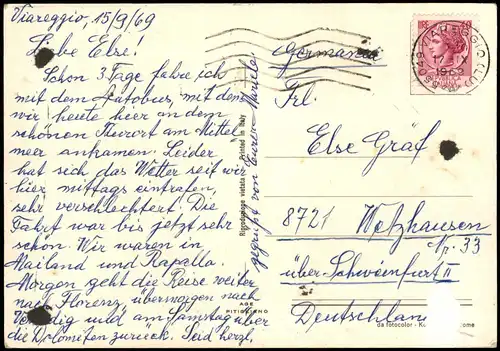 Viareggio, 15/9/69
Liebe Else!
Schon 3 Tage fahre ich
mit dem Autobus, mit dem
wir heute hier an dem
schönen Kurort am Mittel
meer ankamen. Leider
hat sich das Wetter seit wir
hier mittags eintrafen,
sehr verschlechtert. Die
Fahrt war bis jetzt sehr
schön. Wir waren in
Mailand und Rapallo.
Morgen geht die Reise weiter
nach Florenz, übermorgen nach
Venedig und am Samstag über
die Dolomiten zurück. Seid herzl.
gegrüßt von Eurer
Riproduzione vietata
Printed in Italy
AGE
PITIGLIANO
VIAREGGIO (LU)
1969
Germania
Frl.
Else Gräf
8721 Wetzhausen
Nr. 33
über Schweinfurt II
Deutschland
da fotocolor